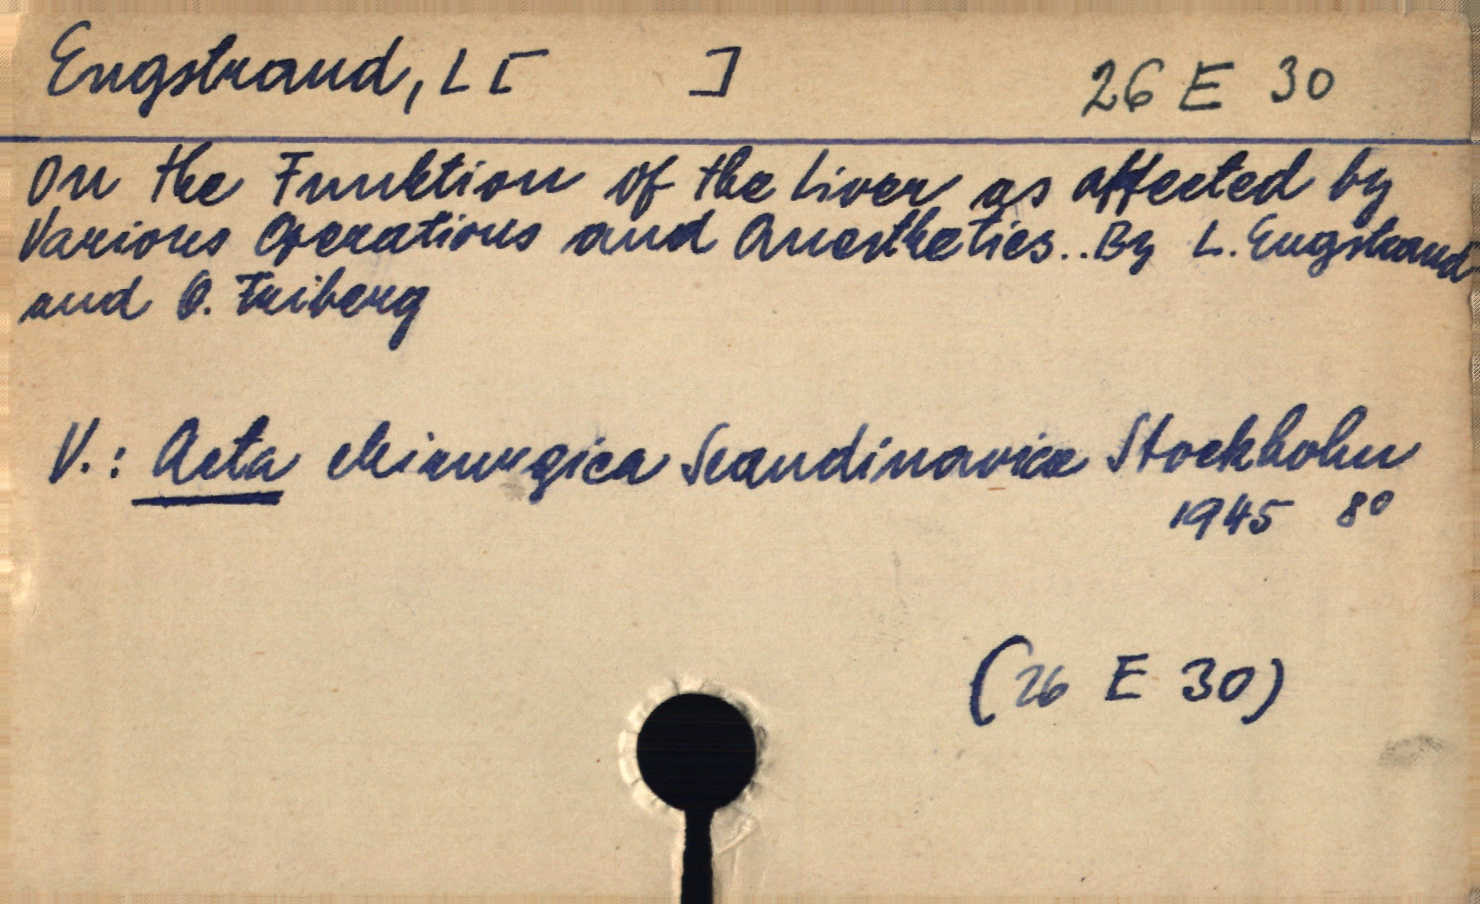 Engstrand, L [ ] 26 E 30
On the Funktion of the Liver as affected by
Various Operations and Anesthetics.. By L. Engstrand
and O. Friberg
V.: Acta chirurgica Scandinavica Stockholm
1945 8°
(26 E 30)